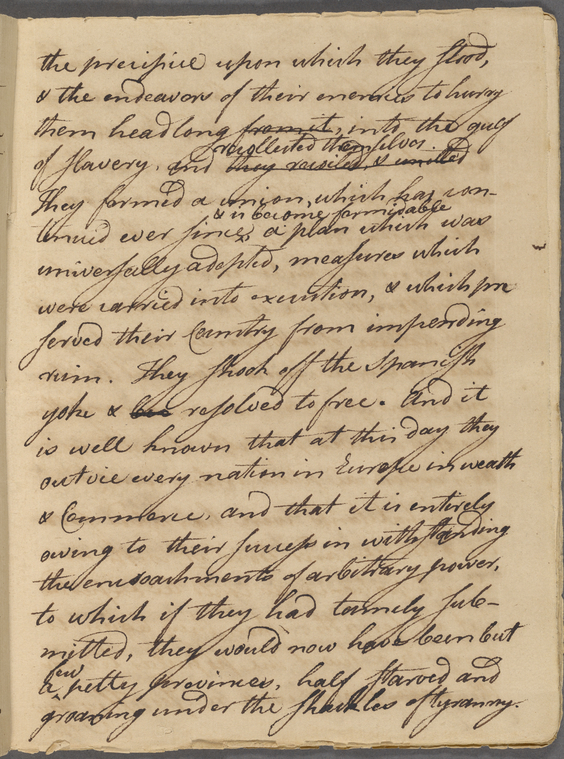 the precipice upon which they stood,
& the endeavors of their enemies to hurry
them headlong from it, into the gulf
recollected themselves.
of slavery, and they recoiled, & united
They formed a union, which has con-
& is become formidable
tinued ever since, a plan which was
universally adopted, measures which
were carried into execution, & which pre
served their Country from impending
ruin. They shook off the Spanish
yoke & resolved to free. And it
is well known that at this day they
outvie every nation in Europe in wealth
& Commerce, and that it is entirely
owing to their success in withstanding
the encroachments of arbitrary power,
to which if they had tamely sub-
mitted, they would now have been but
few
a petty provinces, half starved and
groaning under the shackles of tyranny.